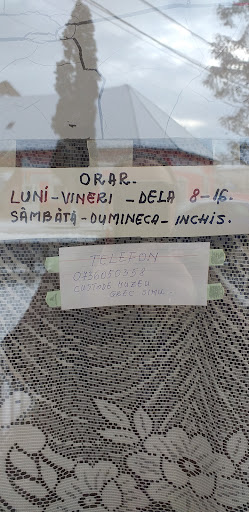 ORAR.
LUNI-VINERI - DELA 8-16.
SÂMBĂTĂ-DUMINECA-INCHIS.
TELEFON
0756050558
CUSTODE MUZEU
GREC SIMU